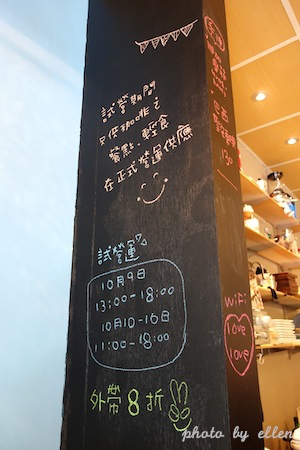 試營期間
只供初咖啡之
餐點、輕食
在正式營運供應
試營運
10月9日
13:00-18:00
10月10-16日
11:00-18:00
外帶8折
巴西
130
WiFi
love
love
photo by ellen